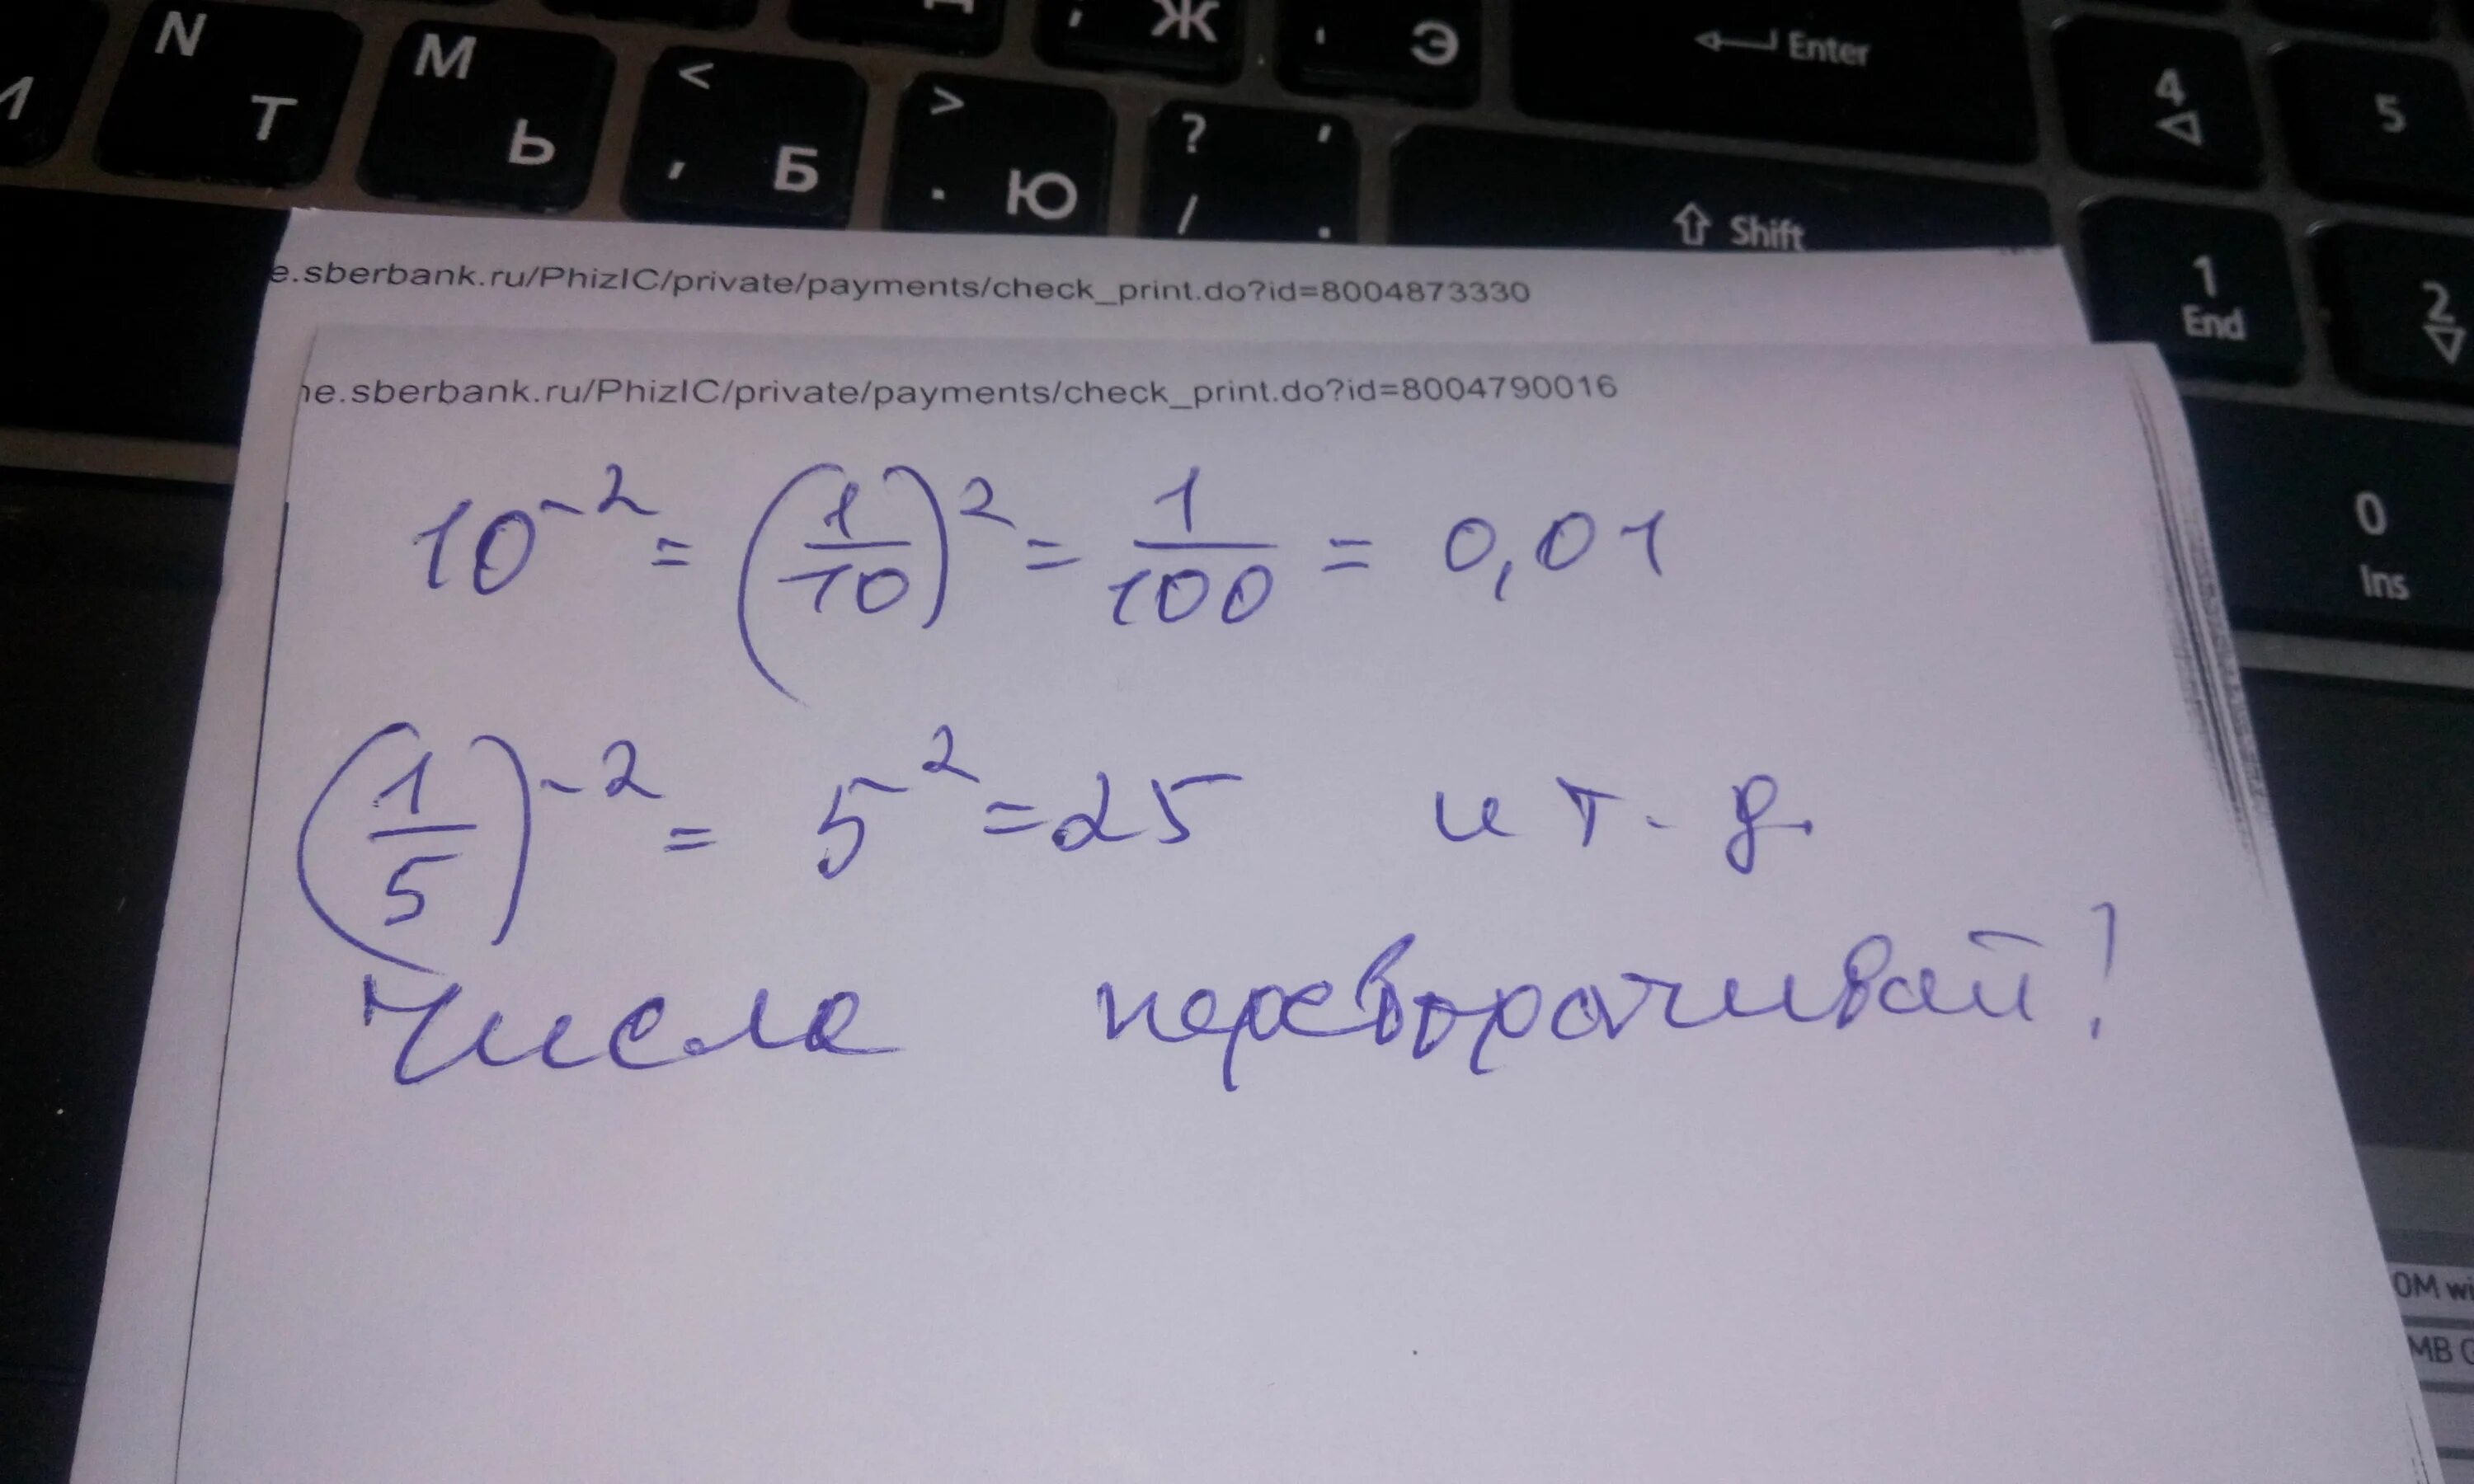 N Т M Ь < , Б > . Ю ? / ' . ; Ж ' Э Enter 4 5
Shift 1 End 2
0 Ins
e.sberbank.ru/PhizIC/private/payments/check_print.do?id=8004873330
ne.sberbank.ru/PhizIC/private/payments/check_print.do?id=8004790016
10^-2 = (1/10)^2 = 1/100 = 0,01
(1/5)^-2 = 5^2 = 25 и т. д.
Числа переворачивай!
OM wi
MB